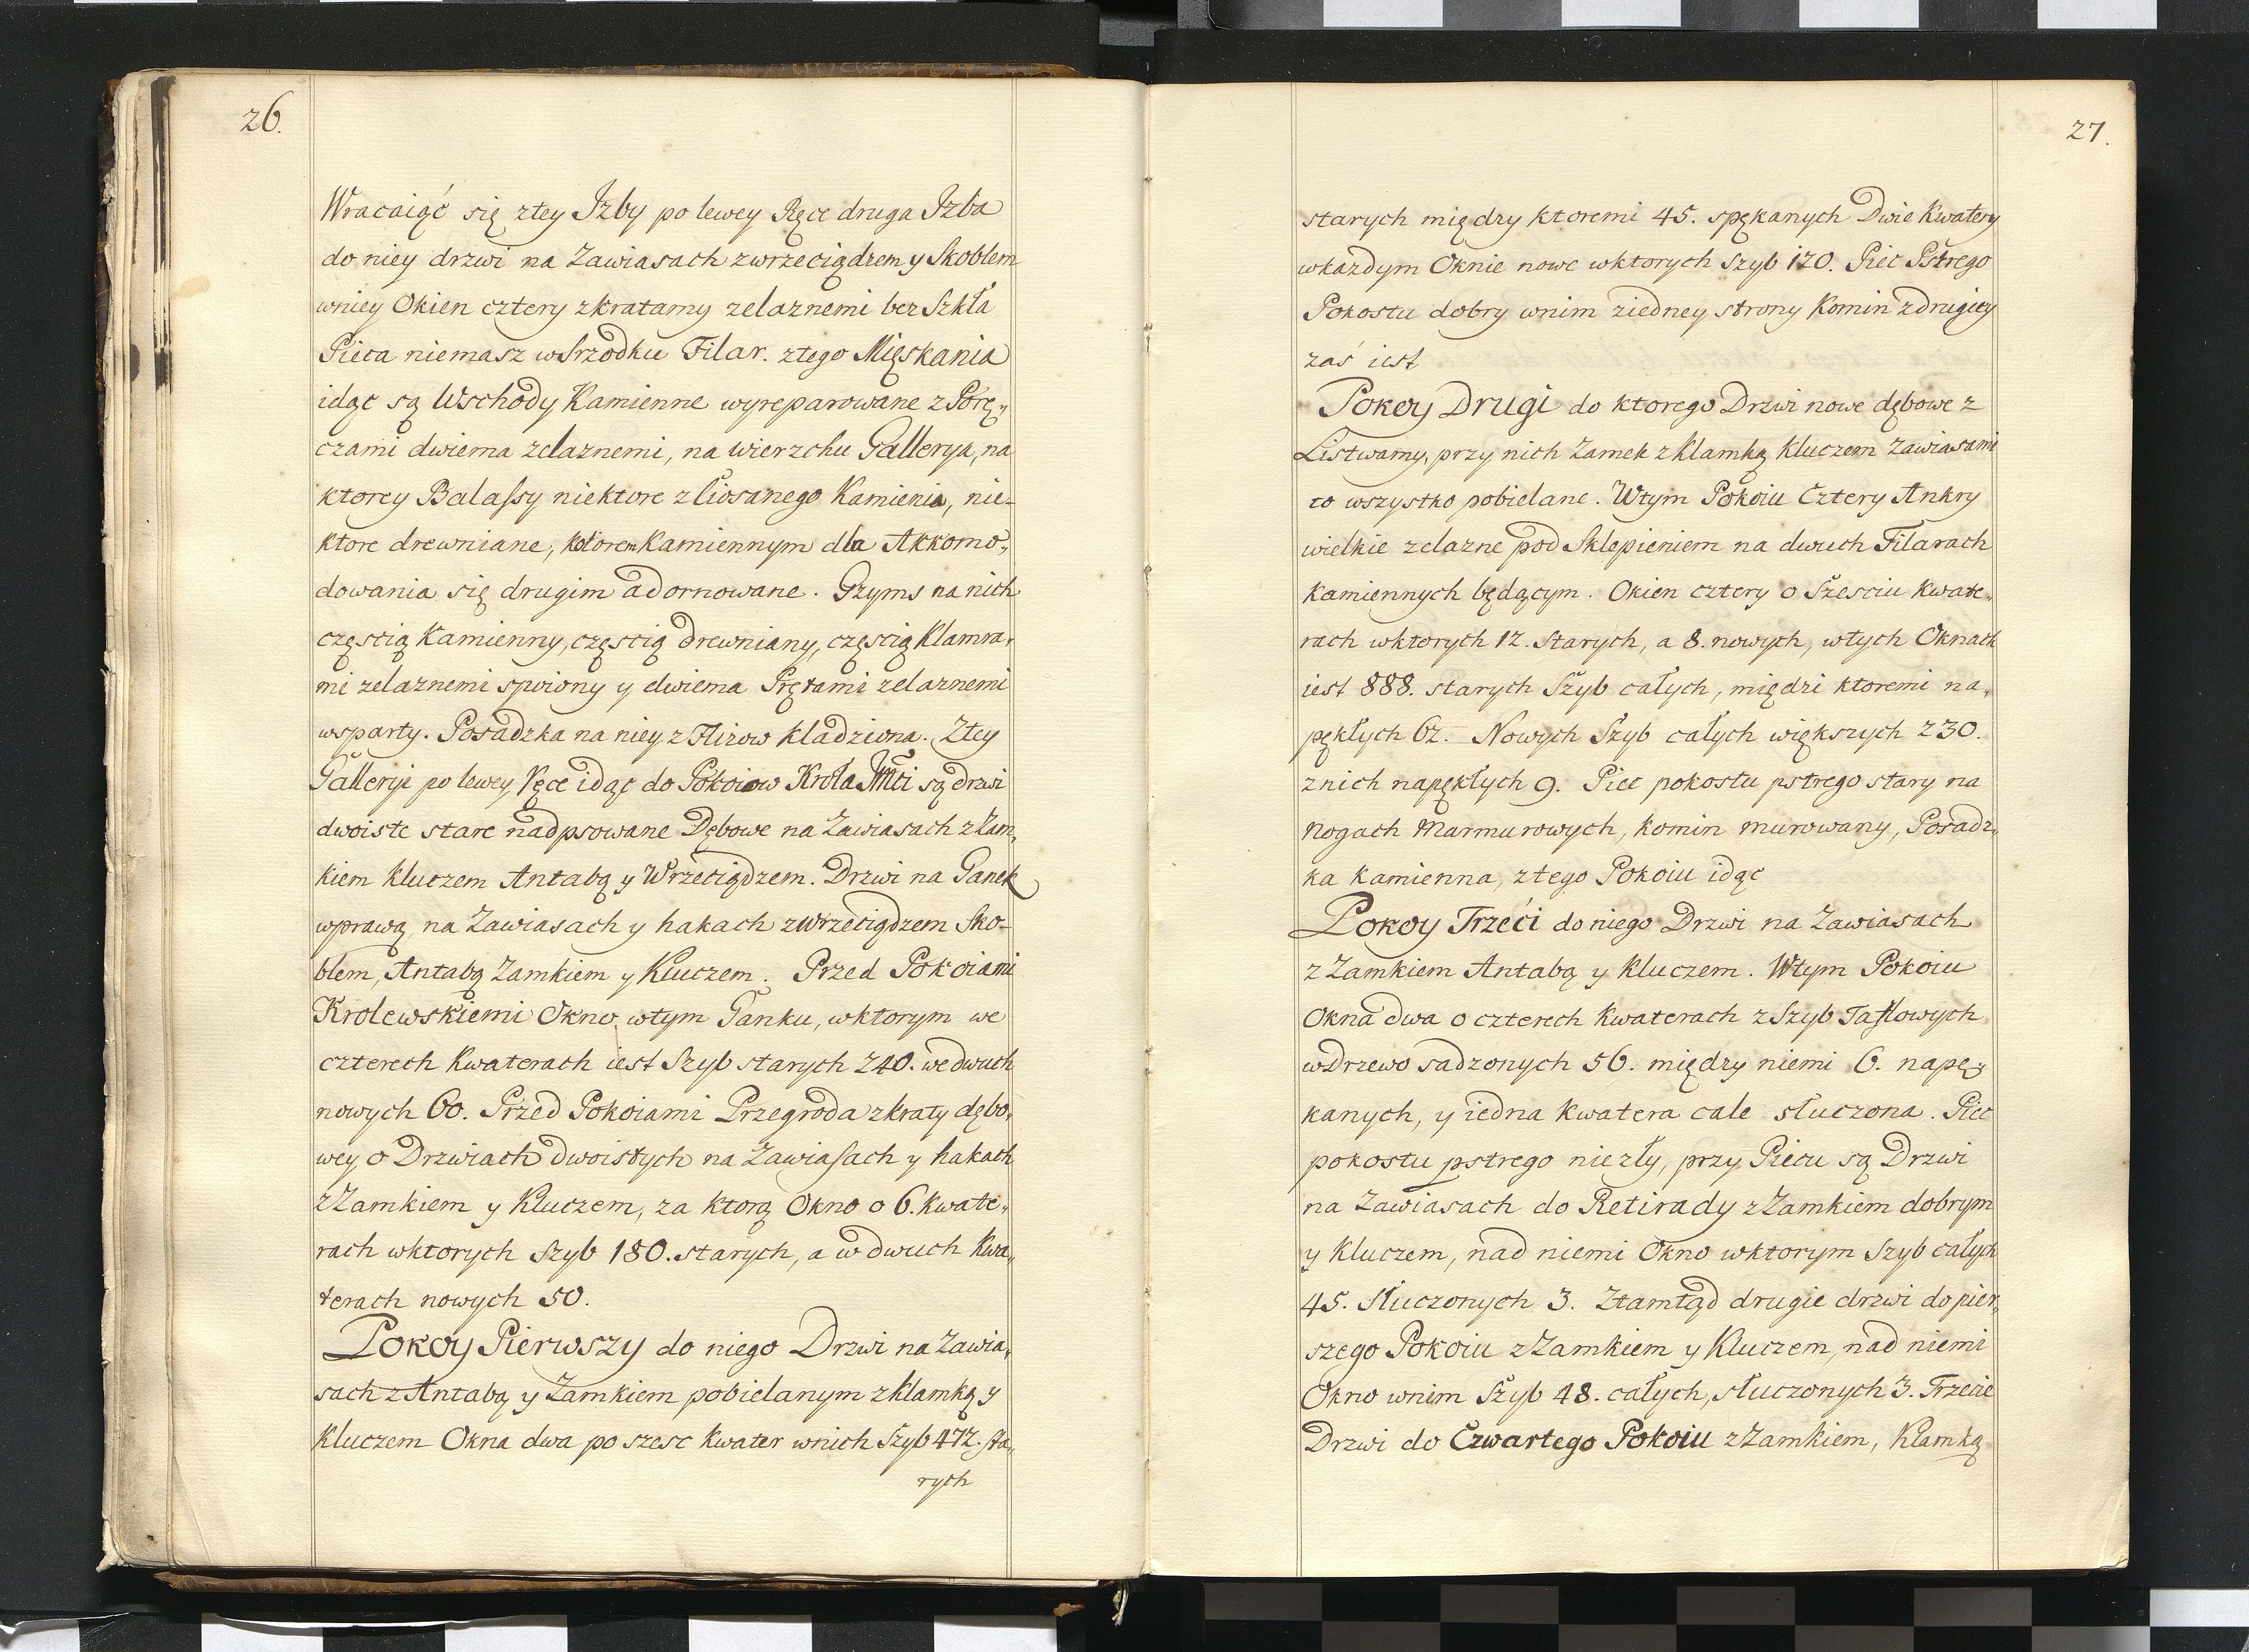 26.
Wracaiąć się ztey Izby po lewey Ręce druga Izba
do niey drzwi na Zawiasach zwrzeciądzem y Skoblem
wniey Okien cztery zkratamy zelaznemi bez Szkła
Pieca niemasz wsrzodku Filar. ztego Mięskania
idąc są Wschody Kamienne wyreparowane z Porę„
czami dwiema zelaznemi, na wierzchu Gallerya, na
ktorey Balassy niektore z Ciosanego Kamienia, nie-
ktore drewniane, Kolorem Kamiennym dla Akkomo„
dowania się drugim adornowane. Gzyms na nich
częscią Kamienny, częscią drewniany, częscią Klamra„
mi zelaznemi spoiony y dwiema Prętami zelaznemi
wsparty. Posadzka na niey z Flizow kladziona. Ztey
Galleryi po lewey Ręce idąc do Pokoiow Krola JMći są drzwi
dwoiste stare nadpsowane Dębowe na Zawiasach z Zam„
kiem kluczem Antabą y Wrzeciądzem. Drzwi na Ganek
wprawą na Zawiasach y hakach zwrzeciądzem Sko-
blem, Antabą Zamkiem y Kluczem. Przed Pokoiami
Krolewskiemi Okno wtym Ganku, wktorym we
czterech Kwaterach iest Szyb starych 240. we dwuch
nowych 60. Przed Pokoiami Przegroda zkraty dębo„
wey o Drzwiach dwoistych na Zawiasach y hakach
z Zamkiem y Kluczem, za ktorą Okno o 6. kwate„
rach wktorych Szyb 180. starych, a w dwuch Kwa„
terach nowych 50.
Pokoy Pierwszy do niego Drzwi na Zawia„
sach z Antabą y Zamkiem pobielanym z Klamką y
Kluczem Okna dwa po szesc Kwater wnich Szyb 472. sta„
rych
27.
starych między ktoremi 45. spękanych Dwie Kwatery
wkazdym Oknie nowe wktorych Szyb 120. Piec Pstrego
Pokostu dobry wnim ziedney strony Komin zdrugiey
zaś iest
Pokoy Drugi do ktorego Drzwi nowe dębowe z
Listwamy, przy nich Zamek z Klamką Kluczem Zawiasami
to wszystko pobielane. Wtym Pokoiu Cztery Ankry
wielkie zelazne pod Sklepieniem na dwuch Filarach
kamiennych będącym. Okien cztery o Szesciu kwate„
rach wktorych 12. starych, a 8. nowych, wtych Oknach
iest 888. starych Szyb całych, międzi ktoremi na„
pękłych 62. Nowych Szyb całych większych 230.
znich napękłych 9. Piec pokostu pstrego stary na
nogach Marmurowych, komin murowany, Posadz„
ka kamienna, ztego Pokoiu idąc
Pokoy Trzeći do niego Drzwi na Zawiasach
z Zamkiem Antabą y Kluczem. Wtym Pokoiu
Okna dwa o czterech Kwaterach z Szyb Taflowych
wDrzewo sadzonych 56. między niemi 6. napę„
kanych, y iedna Kwatera cale słuczona. Piec
pokostu pstrego niezły, przy Piecu są Drzwi
na Zawiasach do Retirady z Zamkiem dobrym
y Kluczem, nad niemi Okno wktorym Szyb całych
45. słuczonych 3. Ztamtąd drugie drzwi do pier„
szego Pokoiu z Zamkiem y Kluczem, nad niemi
Okno wnim Szyb 48. całych, słuczonych 3. Trzecie
Drzwi do Czwartego Pokoiu z Zamkiem, Klamką